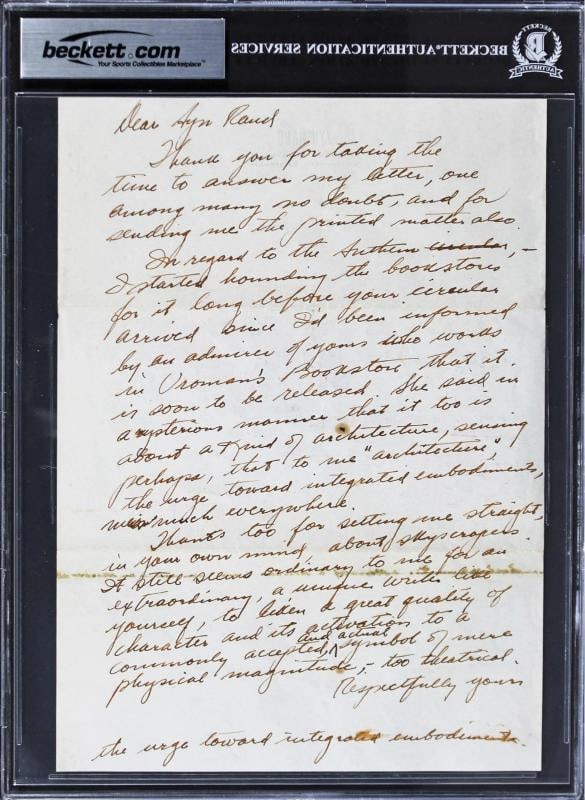 beckett.com
Your Sports Collectibles Marketplace™
BECKETT® AUTHENTICATION SERVICES
BECKETT
AUTHENTIC
Dear Ayn Rand
Thank you for taking the
time to answer my letter, one
among many no doubt, and for
sending me the printed matter also.
In regard to the Anthem circular, –
I started hounding the bookstores
for it long before your circular
arrived since I'd been informed
by an admirer of yours who works
in Vroman's Bookstore that it
is soon to be released. She said in
a mysterious manner that it too is
about a kind of architecture, sensing
perhaps, that to me "architecture",
the urge toward integrated embodiments,
much everywhere.
Thanks too for setting me straight,
in your own mind, about skyscrapers.
It still seems ordinary to me for an
extraordinary, a unique writer like
yourself, to liken a great quality of
character and its activation to a
commonly accepted, and actual symbol of mere
physical magnitude, – too theatrical.
Respectfully yours
the urge toward integrated embodiments.